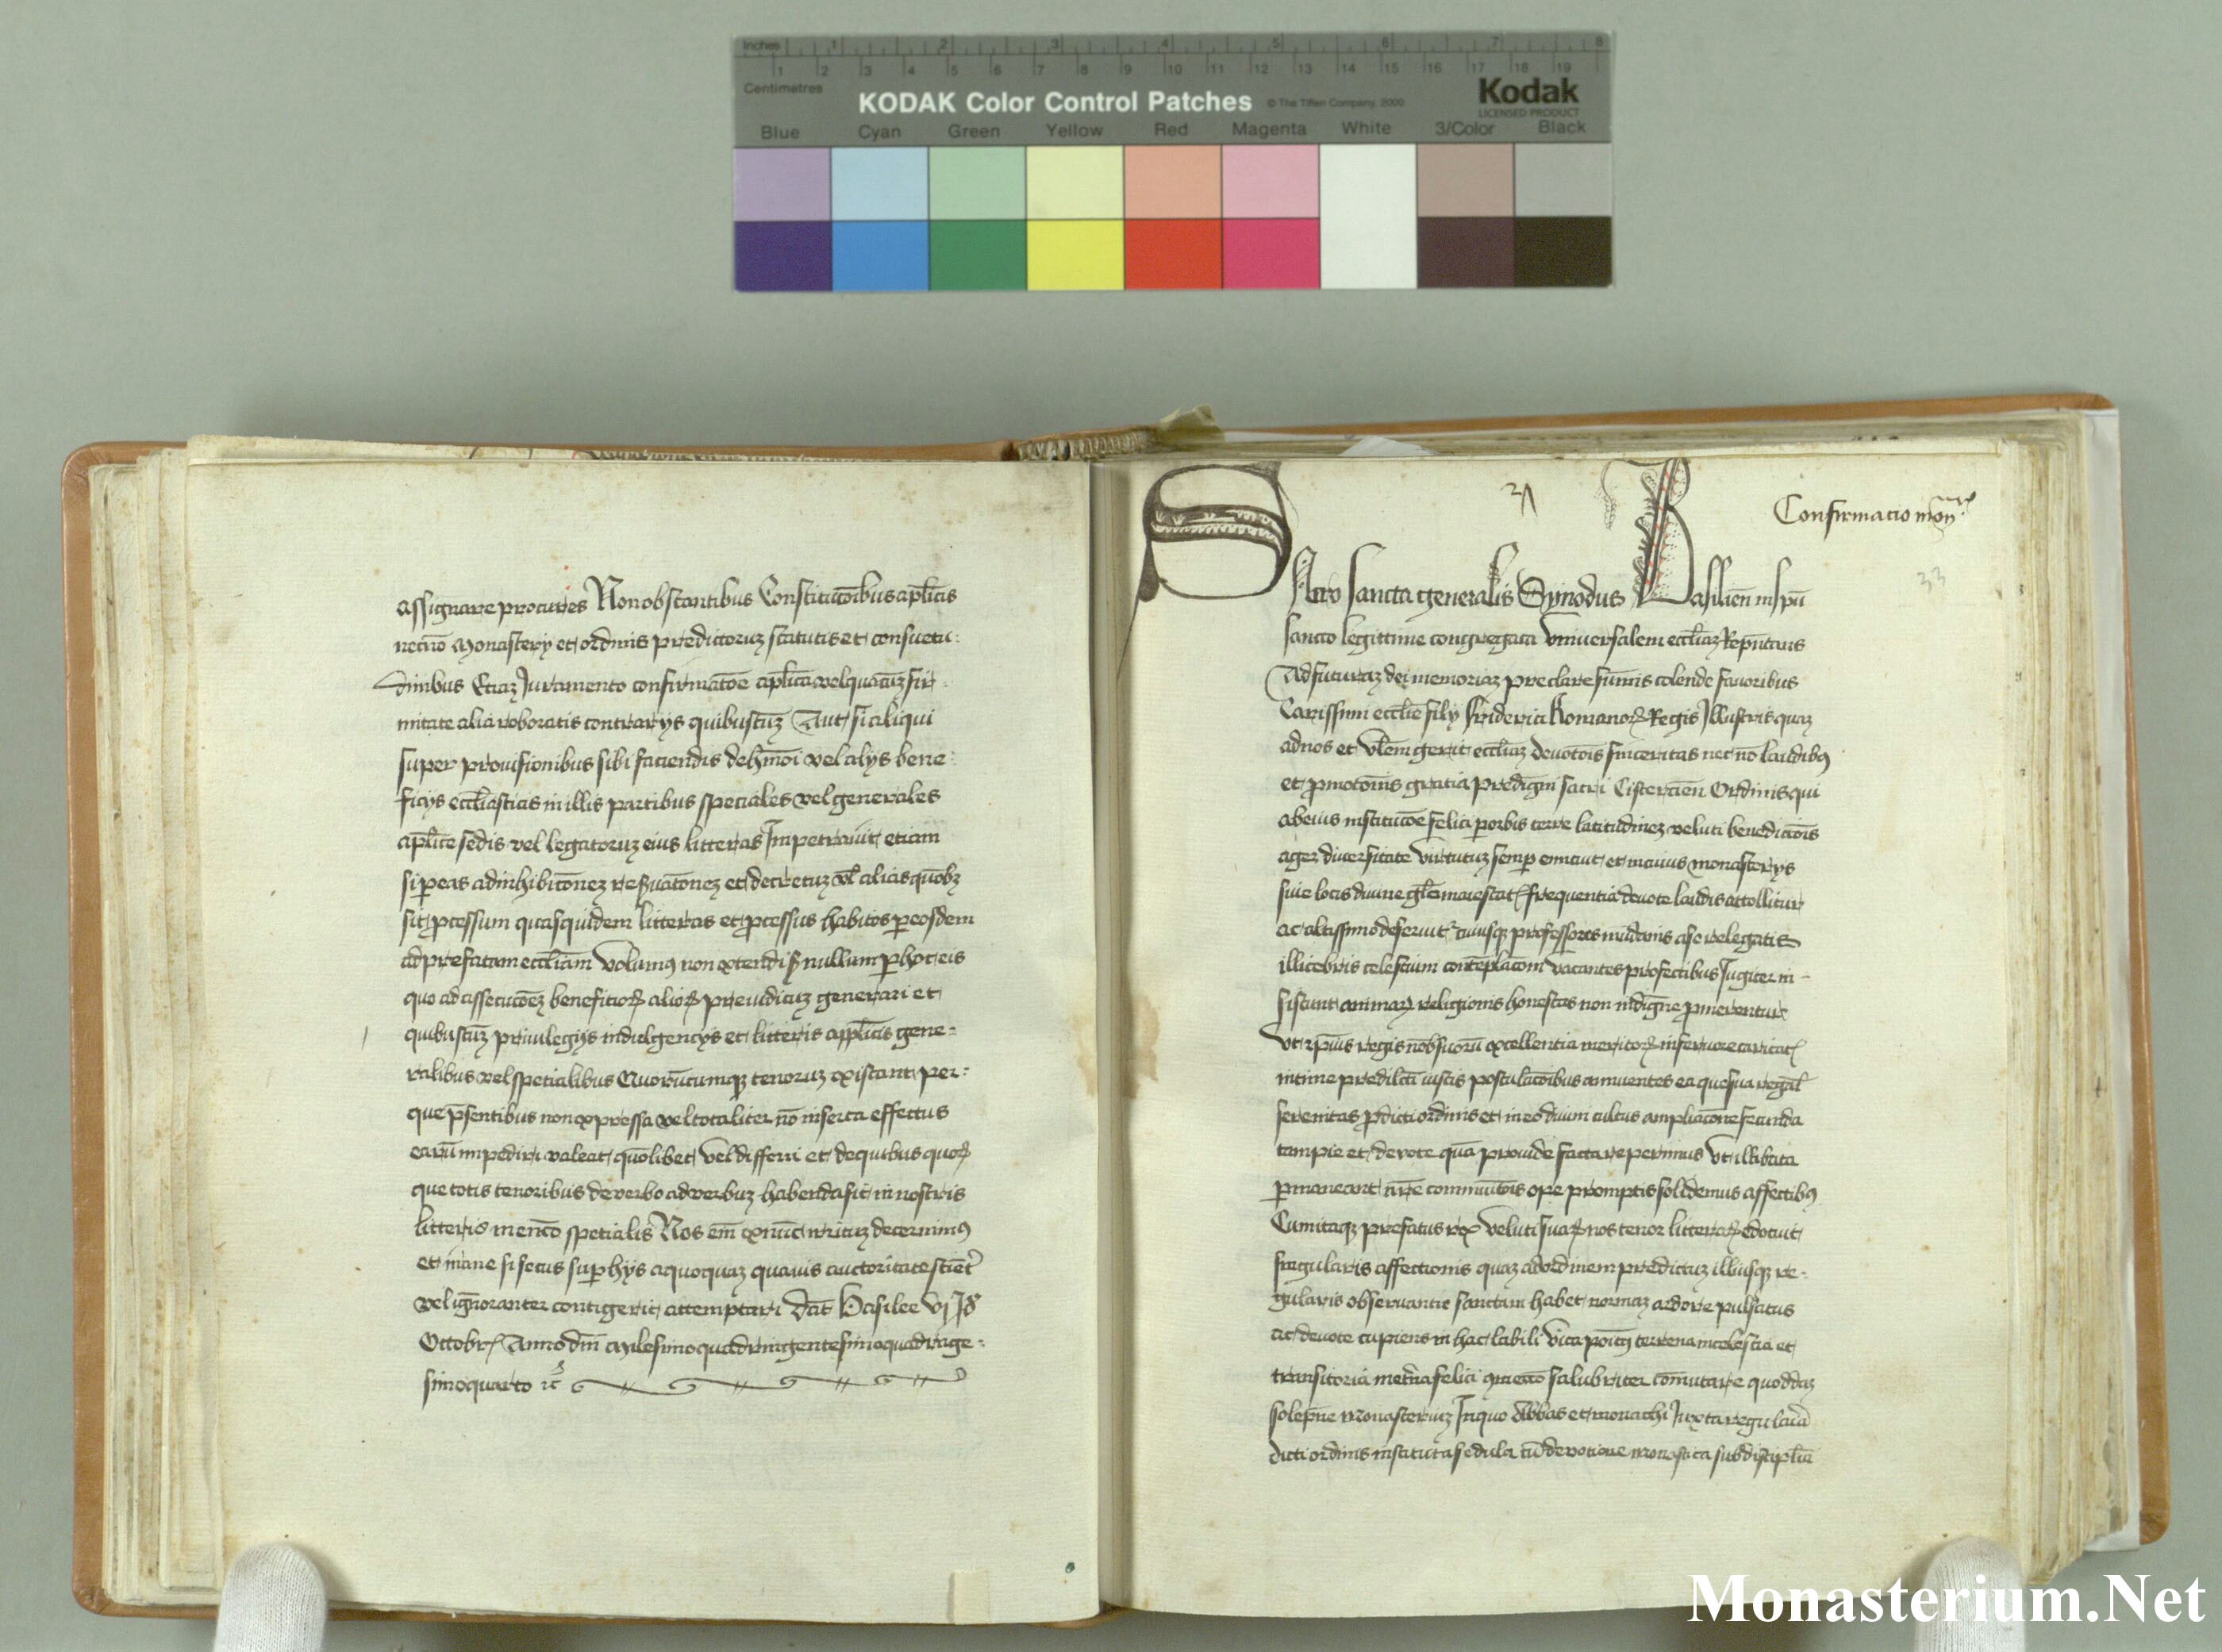 Inches 1 2 3 4 5 6 7 8
1 2 3 4 5 6 7 8 9 10 11 12 13 14 15 16 17 18 19
Centimetres
KODAK Color Control Patches © The Tiffen Company, 2000 Kodak
LICENSED PRODUCT
Blue Cyan Green Yellow Red Magenta White 3/Color Black
assignare procures Non obstantibus Constitucōibus aplicis
necnō Monastery et ordinis predictoruz statutis et consuetu:
dinibus Etiaz Juramento confirmacōe aplica vel quacūz fir
mitate alia roboratis contrarys quibuscūz Aut si aliqui
super provisionibus sibi faciendis de hmōi vel alys bene:
ficys eccliasticis in illis partibus speciales vel generales
aplice sedis vel legatoruz eius litteras Impetravit etiam
si p eas ad inhibicōnez reservacōnez et decretuz vl alias quōbz
sit pcessum quasquidem litteras et pcessus habitos p eosdem
ad prefatam eccliam volumus non extendi sz nullum p hoc eis
quo ad assecucōez beneficior alior preiudicuz generari et
quibuscūz privilegys indulgencys et litteris applicis gene:
ralibus vel specialibus Quorūcumqz tenoruz existant per:
que psentibus non expressa vel totaliter nō inserta effectus
earū impediri valeat quōlibet vel differri et de quibus quor
que totis tenoribus de verbo ad verbuz habenda sit in nostris
litteris mencō specialis Nos em exnūc irrituz decernimus
et inane si secus sup hys a quoquaz quavis auctoritate scient
vel ignoranter contigerit attemptari Dat Basilee vj Id
Octobr Anno dm Mylesimoquadringentesimoquadrage:
simoquarto
Confirmatio mon
33
SAcro sancta generalis Synodus Basilien in spū
sancto legittime congregata Universalem eccliaz Repntans
Ad futuraz dei memoriaz preclare sumis colende favoribus
Carissimi ecclie fily Friderici Romanor Regis Illustris quaz
ad nos et vlem gerit eccliaz devotois sinceritas nec nō laudibus
et pmotōnis gratia predigni sacri Cistercien Ordinis qui
ab eius institucōe felici p orbis terre latitudinez veluti benedictois
ager diversitate virtutuz semp emicuit et in eius monasterys
sive locis divine glie maiestat frequentia devote laudis attollitur
ac altissimo deservit cuiusqz professores mūdanis a se relegatis
illicebris celestium contēplacōni vacantes profectibus Jugiter in
sistunt animar religionis honestas non indigne pmerentur
Ut ipius regis nob suorū excellentia meritor in fervore caritat
intime predilcti iustis postulacōibus annuentes ea que sua regal
serenitas pdicti ordinis et in eo divini cultus ampliacōne fecunda
tam pie et devote quā provide facta reperimus Ut illibata
pmaneant nre commutōis ope promptis solidemus affectibus
Cum itaqz prefatus rex veluti suar nos tenor litterar edocuit
singularis affectionis quaz ad ordinem predictuz illiusqz re:
gularis observantie sanctam habet normaz ardore pulsatus
ac devote cupiens in hac labili vita terrena in celestia et
transitoria in eterna felici salubriter comutare quoddaz
solepne Monasteriuz In quo Abbas et monachi Juxta regularia
dicti ordinis instituta sedula cū devotione monastica sub disciplia
Monasterium.Net